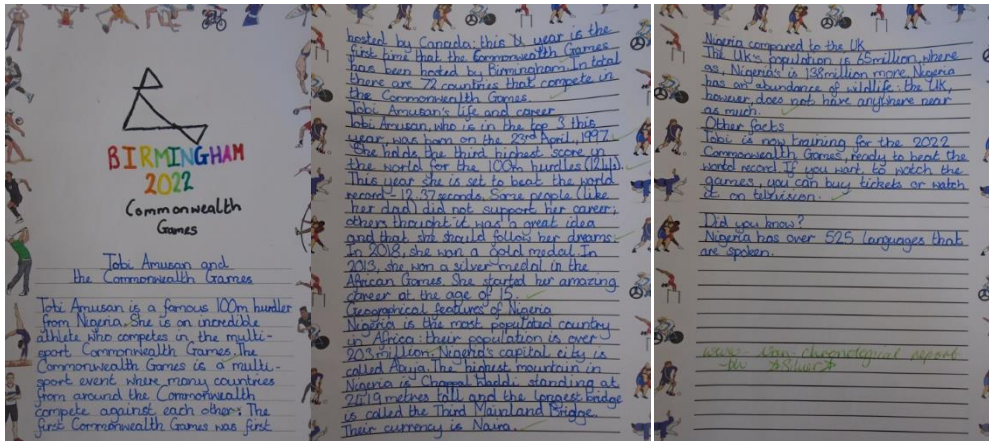 BIRMINGHAM
2022
Commonwealth
Games
Tobi Amusan and
the Commonwealth Games
Tobi Amusan is a famous 100m hurdler
from Nigeria. She is an incredible
athlete who competes in the multi-
sport Commonwealth Games. The
Commonwealth Games is a multi-
sport event where many countries
from around the Commonwealth
compete against each other. The
first Commonwealth Games was first
hosted by Canada: this year is the
first time that the Commonwealth Games
has been hosted by Birmingham. In total
there are 72 countries that compete in
the Commonwealth Games.
Tobi Amusan's life and career
Tobi Amusan, who is in the top 3 this
year, was born on the 23rd April, 1997.
She holds the third highest score in
the world for the 100m hurdles
This year she is set to beat the world
record - 12.37 seconds. Some people (like
her dad) did not support her career;
others thought it was a great idea
and that she should follow her dreams.
In 2018, she won a gold medal. In
2013, she won a silver medal in the
African Games. She started her amazing
career at the age of 15.
Geographical features of Nigeria
Nigeria is the most populated country
in Africa: their population is over
203 million. Nigeria's capital city is
called Abuja. The highest mountain in
Nigeria is Chappal Waddi standing at
2419 metres tall and the longest bridge
is called the Third Mainland Bridge.
Their currency is Naira.
Nigeria compared to the UK
The UK's population is 65million, where
as, Nigeria's is 138million more. Nigeria
has an abundance of wildlife: the UK,
however, does not have anywhere near
as much.
Other facts
Tobi is now training for the 2022
Commonwealth Games, ready to beat the
world record. If you want to watch the
games, you can buy tickets or watch
it on television.
Did you know?
Nigeria has over 525 languages that
are spoken.
non-chronological report